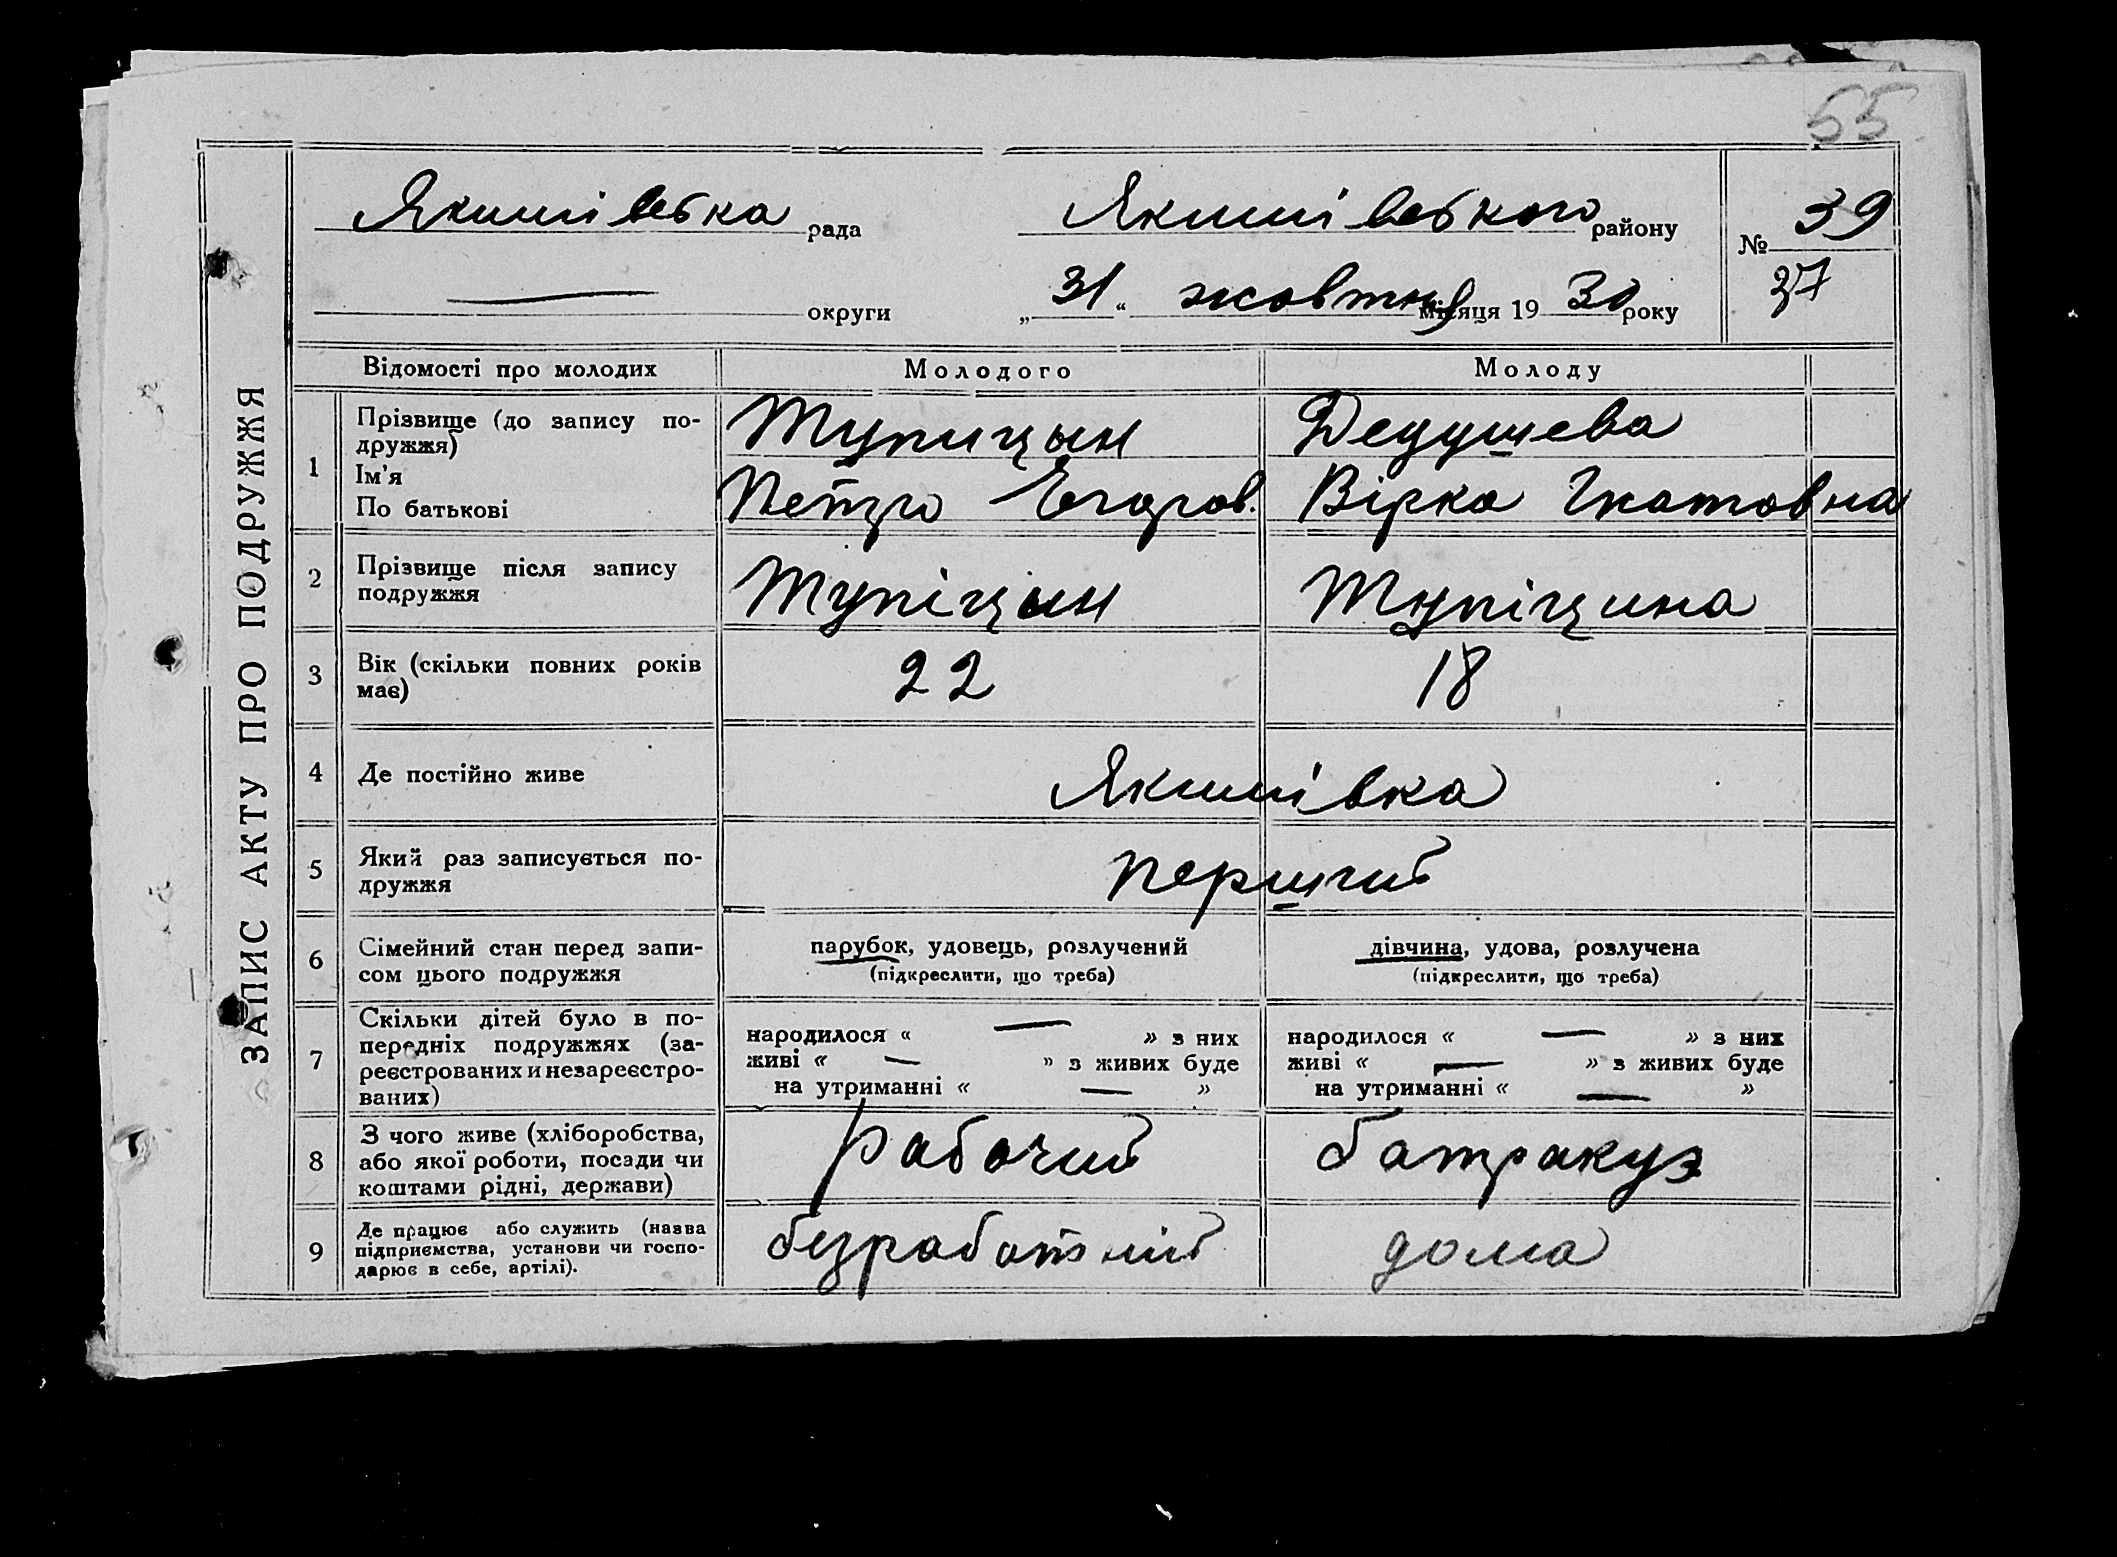 55
Якимівська рада Якимівського району № 39
округи „31“ жовтня місяця 1930 року 37
ЗАПИС АКТУ ПРО ПОДРУЖЖЯ
Відомості про молодих Молодого Молоду
1 Прізвище (до запису по-
дружжя) Тупицын Дедушева
Ім’я
По батькові Петро Егоров. Вірка Ігнатовна
2 Прізвище після запису
подружжя Тупіцин Тупіцина
3 Вік (скільки повних років
має) 22 18
4 Де постійно живе Якимівка
5 Який раз записується по-
дружжя перший
6 Сімейний стан перед запи-
сом цього подружжя
парубок, удовець, розлучений
(підкреслити, що треба)
дівчина, удова, розлучена
(підкреслити, що треба)
7 Скільки дітей було в по-
передніх подружжях (за-
реєстрованих и незареєстро-
ваних)
народилося « — » з них
живі « — » з живих буде
на утриманні « — »
народилося « — » з них
живі « — » з живих буде
на утриманні « — »
8 З чого живе (хліборобства,
або якої роботи, посади чи
коштами рідні, держави)
рабочий батракує
9 Де працює або служить (назва
підприємства, установи чи госпо-
дарює в себе, артілі).
безработний дома